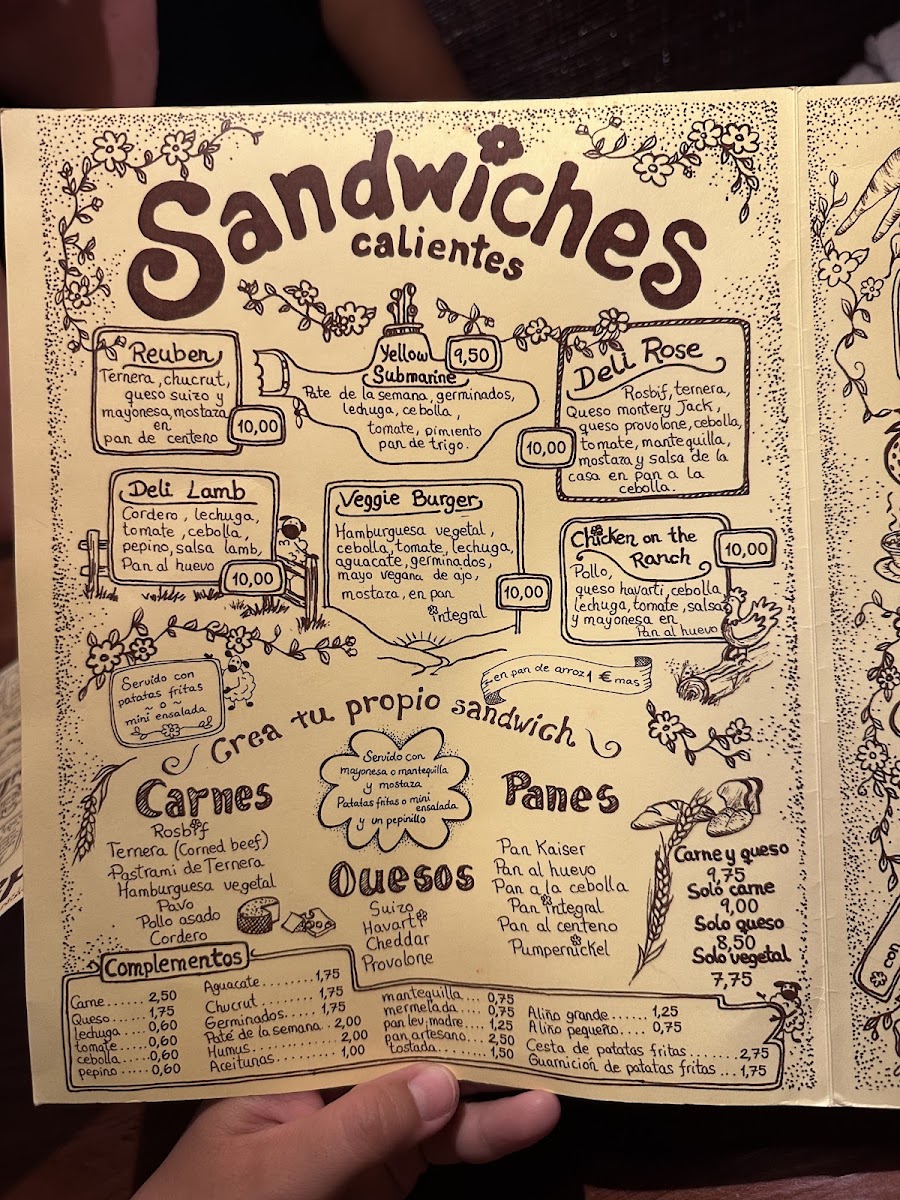 Sandwiches
calientes
Reuben
Ternera, chucrut,
queso suizo y
mayonesa, mostaza
en
pan de centeno
10,00
Yellow
Submarine
9,50
Pate de la semana, germinados,
lechuga, cebolla,
tomate, pimiento
pan de trigo.
Deli Rose
Rosbif, ternera,
Queso montery Jack,
queso provolone, cebolla,
tomate, mantequilla,
mostaza y salsa de la
casa en pan a la
cebolla.
10,00
Deli Lamb
Cordero, lechuga,
tomate, cebolla,
pepino, salsa lamb,
Pan al huevo
10,00
Veggie Burger
Hamburguesa vegetal,
cebolla, tomate, lechuga,
aguacate, germinados,
mayo vegana de ajo,
mostaza, en pan
integral
10,00
Chicken on the
Ranch
10,00
Pollo,
queso havarti, cebolla
lechuga, tomate, salsa
y mayonesa en
Pan al huevo
Servido con
patatas fritas
~ o ~
mini ensalada
en pan de arroz 1 € mas
Crea tu propio sandwich
Carnes
Rosbif
Ternera (Corned beef)
Pastrami de Ternera
Hamburguesa vegetal
Pavo
Pollo asado
Cordero
Servido con
mayonesa o mantequilla
y mostaza
Patatas fritas o mini
ensalada
y un pepinillo
Quesos
Suizo
Havarti
Cheddar
Provolone
Panes
Pan Kaiser
Pan al huevo
Pan a la cebolla
Pan integral
Pan al centeno
Pumpernickel
Carne y queso
9,75
Solo carne
9,00
Solo queso
8,50
Solo vegetal
7,75
Complementos
Carne...... 2,50
Queso...... 1,75
lechuga.... 0,60
tomate.... 0,60
cebolla.... 0,60
pepino..... 0,60
Aguacate........ 1,75
Chucrut......... 1,75
Germinados...... 1,75
Paté de la semana.. 2,00
Humus.......... 2,00
Aceitunas........ 1,00
mantequilla... 0,75
mermelada.... 0,75
pan lev.madre.. 1,25
pan artesano.. 2,50
tostada........ 1,50
Aliño grande..... 1,25
Aliño pequeño.... 0,75
Cesta de patatas fritas......2,75
Guarnicion de patatas fritas ...1,75
con